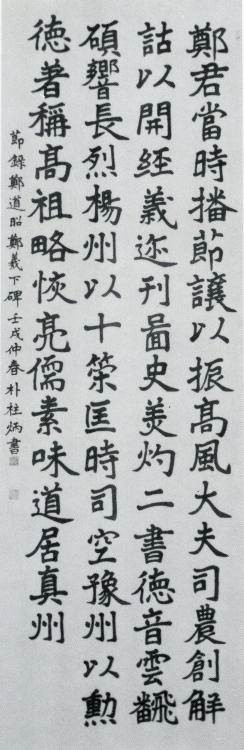 鄭君當時播節讓以振髙風大夫司農創解
詁以開經義迩刋啚史羙灼二書徳音雲飜
碩響長烈楊州以十策匡時司空豫州以勲
徳著稱髙祖略恢亮儒素味道居真州
節錄鄭道昭鄭羲下碑壬戌仲春朴柱炳書